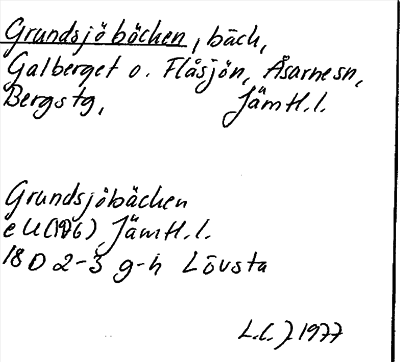 Grundsjöbäcken, bäck,
Galberget o. Flåsjön, Åsarne sn,
Bergs tg, Jämtl.l.
Grundsjöbäcken
e U(1976) Jämtl.l.
18 D 2-3 g-h Lövsta
L.L.J 1977